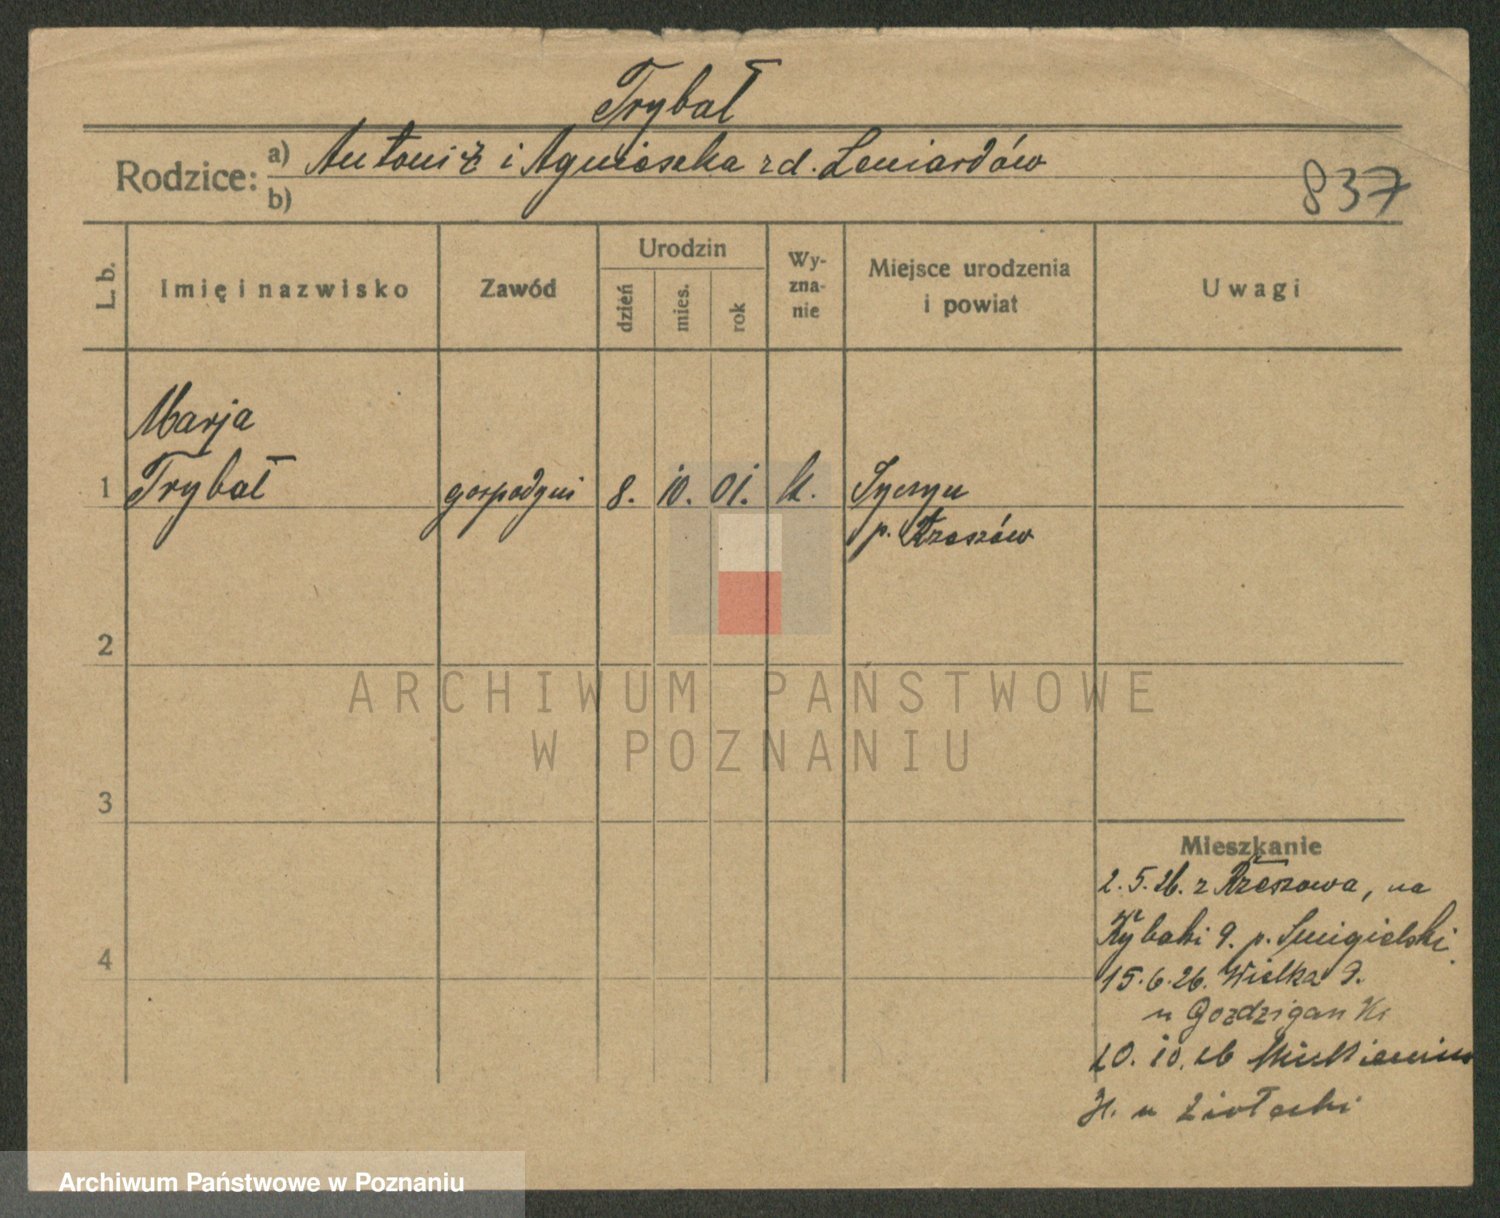 Trybał
Rodzice: a) Antoni ż i Agnieszka z d. Leniardów
b)
837
L. b.
Imię i nazwisko
Zawód
Urodzin
dzień
mies.
rok
Wy-
zna-
nie
Miejsce urodzenia
i powiat
Uwagi
Marja
1 Trybał gospodyni 8. 10. 01. k. Tyczyn
p. Rzeszów
2
3
4
Mieszkanie
2.5.26. z Rzeszowa, na
Rybaki 9. p. Smigielski
15.6.26. Wielka 9.
u Gozdzigan
20.10.26
u Ziołecki
ARCHIWUM PAŃSTWOWE
W POZNANIU
Archiwum Państwowe w Poznaniu